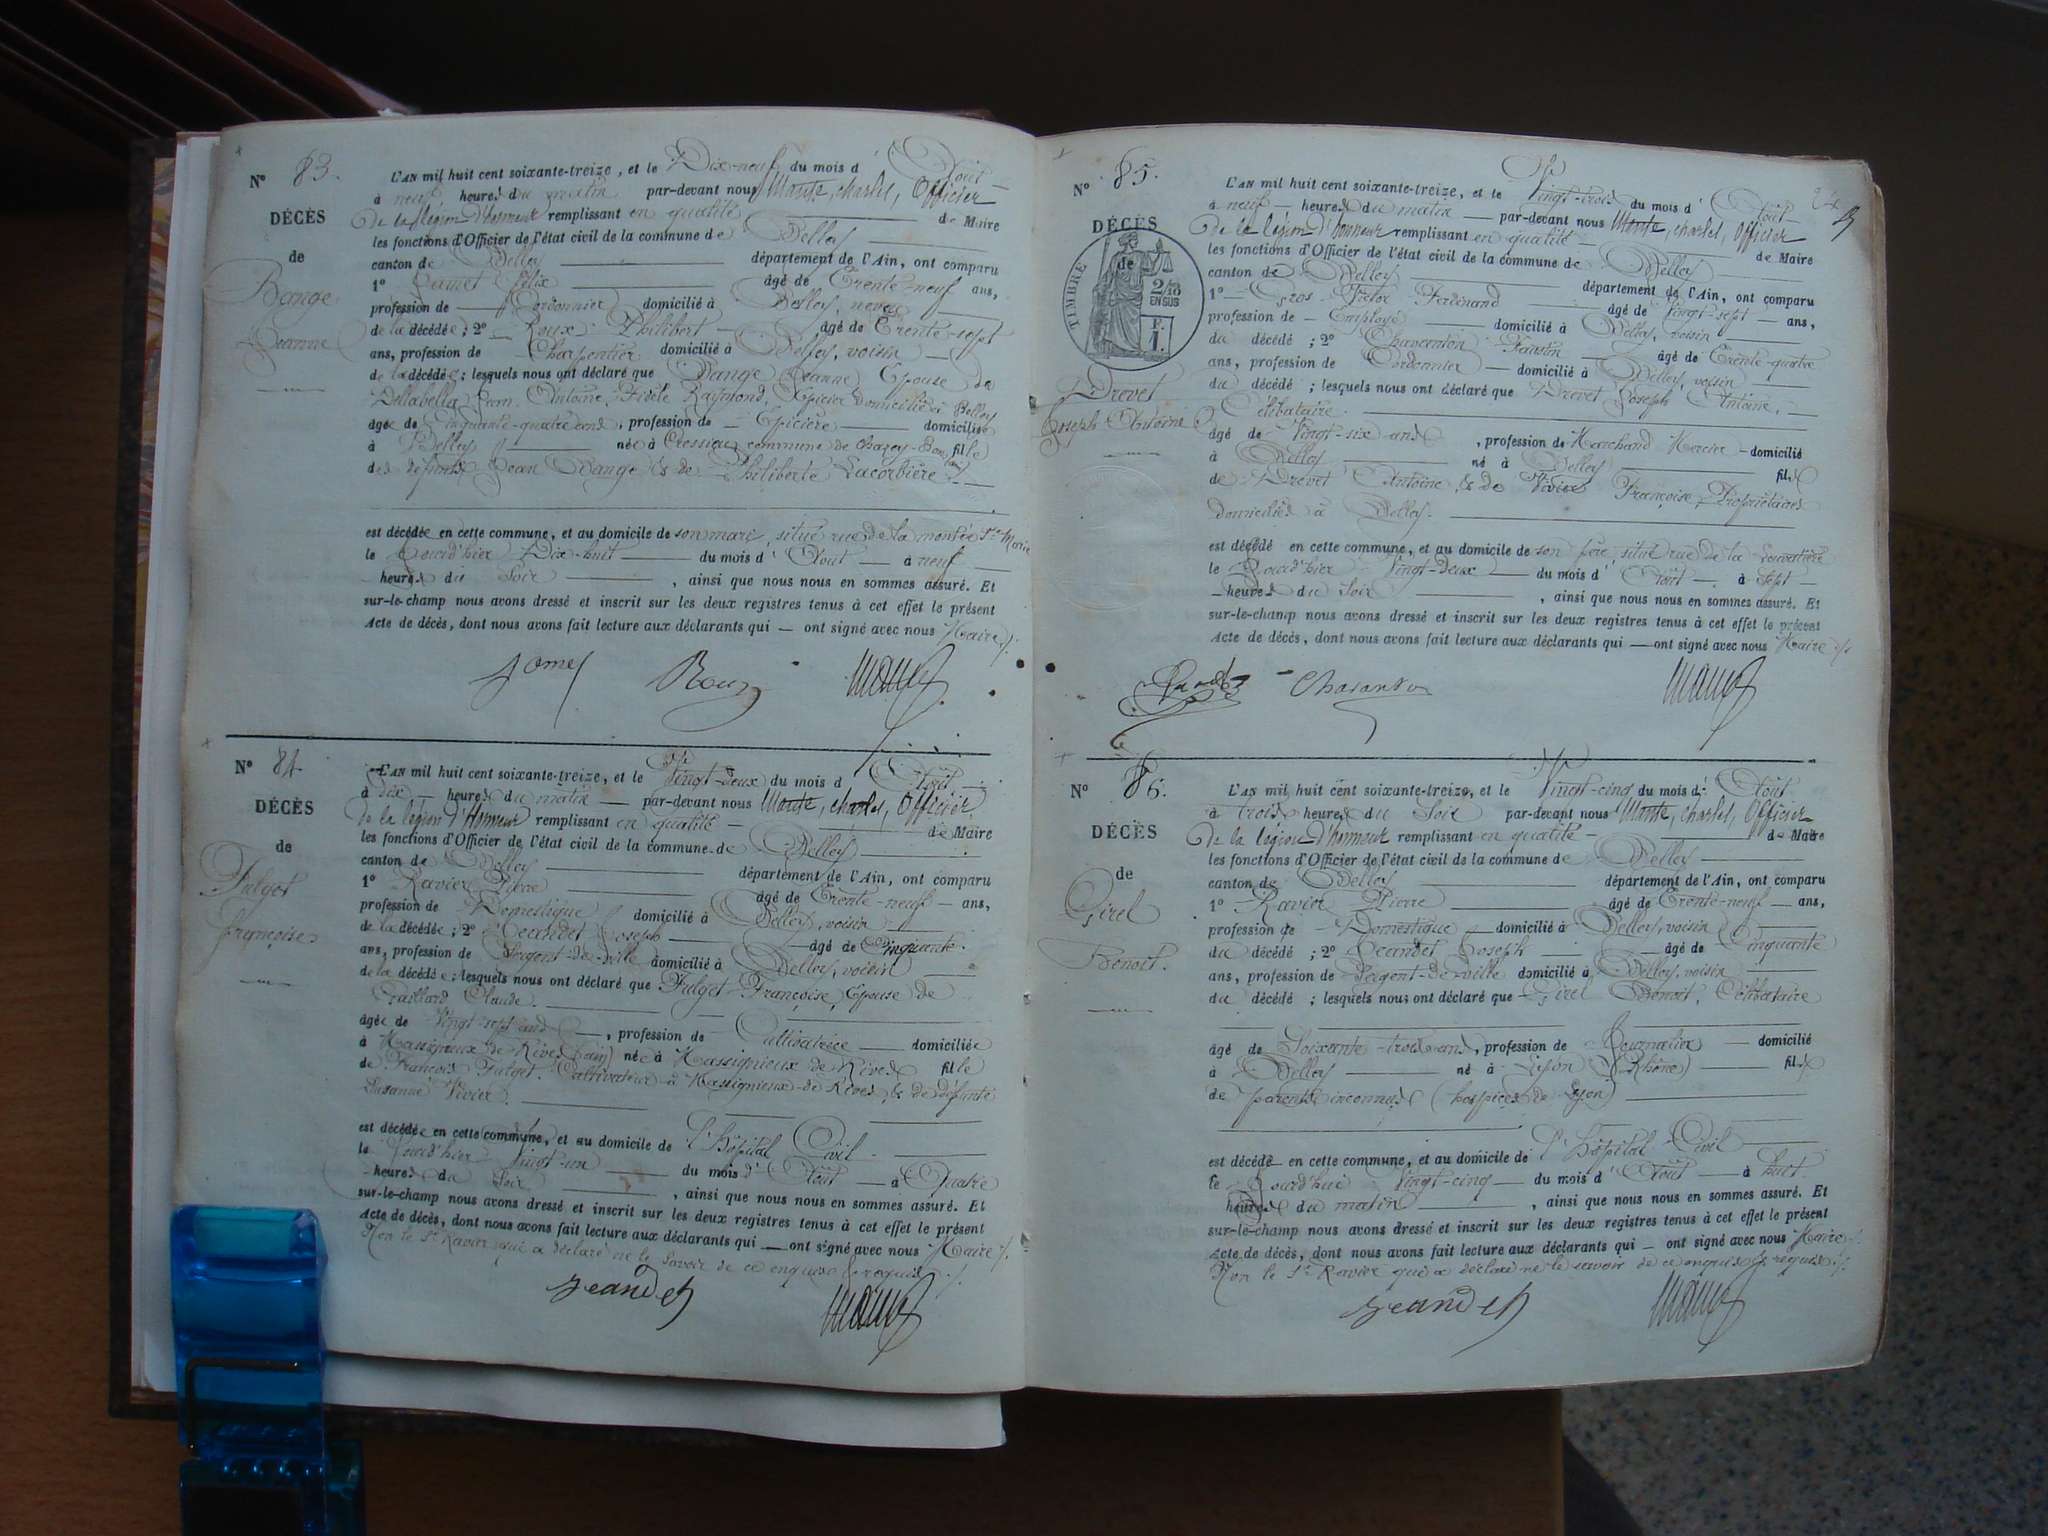 N° 83.
DÉCÈS
de
Bange
Jeanne
L'AN mil huit cent soixante-treize, et le Dix-neuf du mois d' Août
à neuf heures du matin par-devant nous Mante, charles, Officier
de la légion d'honneur remplissant en qualité de Maire
les fonctions d'Officier de l'état civil de la commune de Belley
canton de Belley département de l'Ain, ont comparu
1° Félix âgé de Trente-neuf ans,
profession de Cordonnier domicilié à Belley, neveu
de la décédée ; 2° Roux Philibert âgé de Trente-sept
ans, profession de Charpentier domicilié à Belley, voisin
de la décédée ; lesquels nous ont déclaré que Bange Jeanne Epouse de
Dellabella Jean Antoine, Fidèle Raymond, Epicier domicilié à Belley
âgée de Cinquante-quatre ans, profession de Epicière domiciliée
à Belley née à Cressieu commune de Chazey-Bons fille
des défunts Jean Bange & de Philiberte Lacorbière
est décédée en cette commune, et au domicile de son mari, situé rue de la montée Ste Marie
le jourd'hier Dix-huit du mois d' Août à neuf
heures du Soir , ainsi que nous nous en sommes assuré. Et
sur-le-champ nous avons dressé et inscrit sur les deux registres tenus à cet effet le présent
Acte de décès, dont nous avons fait lecture aux déclarants qui ont signé avec nous Maire
Roux
N° 84
DÉCÈS
de
Fulget
Françoise
L'AN mil huit cent soixante-treize, et le Vingt-deux du mois d Août
à dix heures du matin par-devant nous Mante, charles, Officier
de la légion d'Honneur remplissant en qualité de Maire
les fonctions d'Officier de l'état civil de la commune de Belley
canton de Belley département de l'Ain, ont comparu
1° Ravier Pierre âgé de Trente-neuf ans,
profession de Domestique domicilié à Belley, voisin
de la décédée ; 2° Jeandet Joseph âgé de Cinquante
ans, profession de Sergent-de-ville domicilié à Belley, voisin
de la décédée ; lesquels nous ont déclaré que Fulget Françoise, Epouse de
Gaillard Claude
âgée de Vingt-sept ans , profession de Cultivatrice domiciliée
à Massignieux de Rives (ain) née à Massignieux de Rives fille
de François Fulget, Cultivateur à Massignieux-de Rives, & de défunte
Susanne Vivier
est décédée en cette commune, et au domicile de l'hôpital Civil
le jourd'hier Vingt-un du mois d' Août à Quatre
heures du Soir , ainsi que nous nous en sommes assuré. Et
sur-le-champ nous avons dressé et inscrit sur les deux registres tenus à cet effet le présent
Acte de décès, dont nous avons fait lecture aux déclarants qui ont signé avec nous Maire
Non le Sr Ravier qui a déclaré ne le savoir de ce enquis & requis
Jeandet
N° 85.
DÉCÈS
de
TIMBRE
2/10
EN SUS
F.
1.
Drevet
Joseph Antoine
L'AN mil huit cent soixante-treize, et le Vingt-trois du mois d' Août
à neuf heures du matin par-devant nous Mante, charles, Officier
de la légion d'honneur remplissant en qualité de Maire
les fonctions d'Officier de l'état civil de la commune de Belley
canton de Belley département de l'Ain, ont comparu
1° Gros Victor Ferdinand âgé de Vingt sept ans,
profession de Employé domicilié à Belley, voisin
du décédé ; 2° Charenton Faustin âgé de Trente-quatre
ans, profession de Cordonnier domicilié à Belley, voisin
du décédé ; lesquels nous ont déclaré que Drevet Joseph Antoine,
Célibataire
âgé de Vingt-six ans , profession de Marchand Mercier domicilié
à Belley né à Belley fils
de Drevet Antoine, & de Vivier Françoise, Propriétaires
domiciliés à Belley
est décédé en cette commune, et au domicile de son père situé rue de la
le jourd'hier Vingt-deux du mois d' Août à Sept
heures du Soir , ainsi que nous nous en sommes assuré. Et
sur-le-champ nous avons dressé et inscrit sur les deux registres tenus à cet effet le présent
Acte de décès, dont nous avons fait lecture aux déclarants qui ont signé avec nous Maire
N° 86.
DÉCÈS
de
Girel
Benoit.
L'AN mil huit cent soixante-treize, et le Vingt-cinq du mois d' Août
à trois heures du Soir par-devant nous Mante, charles, Officier
de la légion d'honneur remplissant en qualité de Maire
les fonctions d'Officier de l'état civil de la commune de Belley
canton de Belley département de l'Ain, ont comparu
1° Ravier Pierre âgé de Trente-neuf ans,
profession de Domestique domicilié à Belley, voisin
du décédé ; 2° Jeandet Joseph âgé de Cinquante
ans, profession de Sergent-de-ville domicilié à Belley, voisin
du décédé ; lesquels nous ont déclaré que Girel Benoit, Célibataire
âgé de Soixante-trois ans, profession de Journalier domicilié
à Belley né à Lyon (Rhône) fils
de parents inconnus (hospices de Lyon)
est décédé en cette commune, et au domicile de l'hôpital Civil
le jourd'hui Vingt-cinq du mois d' Août à huit
heures du matin , ainsi que nous nous en sommes assuré. Et
sur-le-champ nous avons dressé et inscrit sur les deux registres tenus à cet effet le présent
Acte de décès, dont nous avons fait lecture aux déclarants qui ont signé avec nous Maire
Non le Sr Ravier qui a déclaré ne le savoir de ce enquis & requis
Jeandet